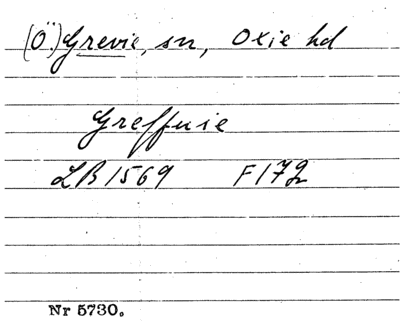 (Ö.) Grevie, sn, Oxie hd
Greffuie
LB 1569 F172
Nr 5730.